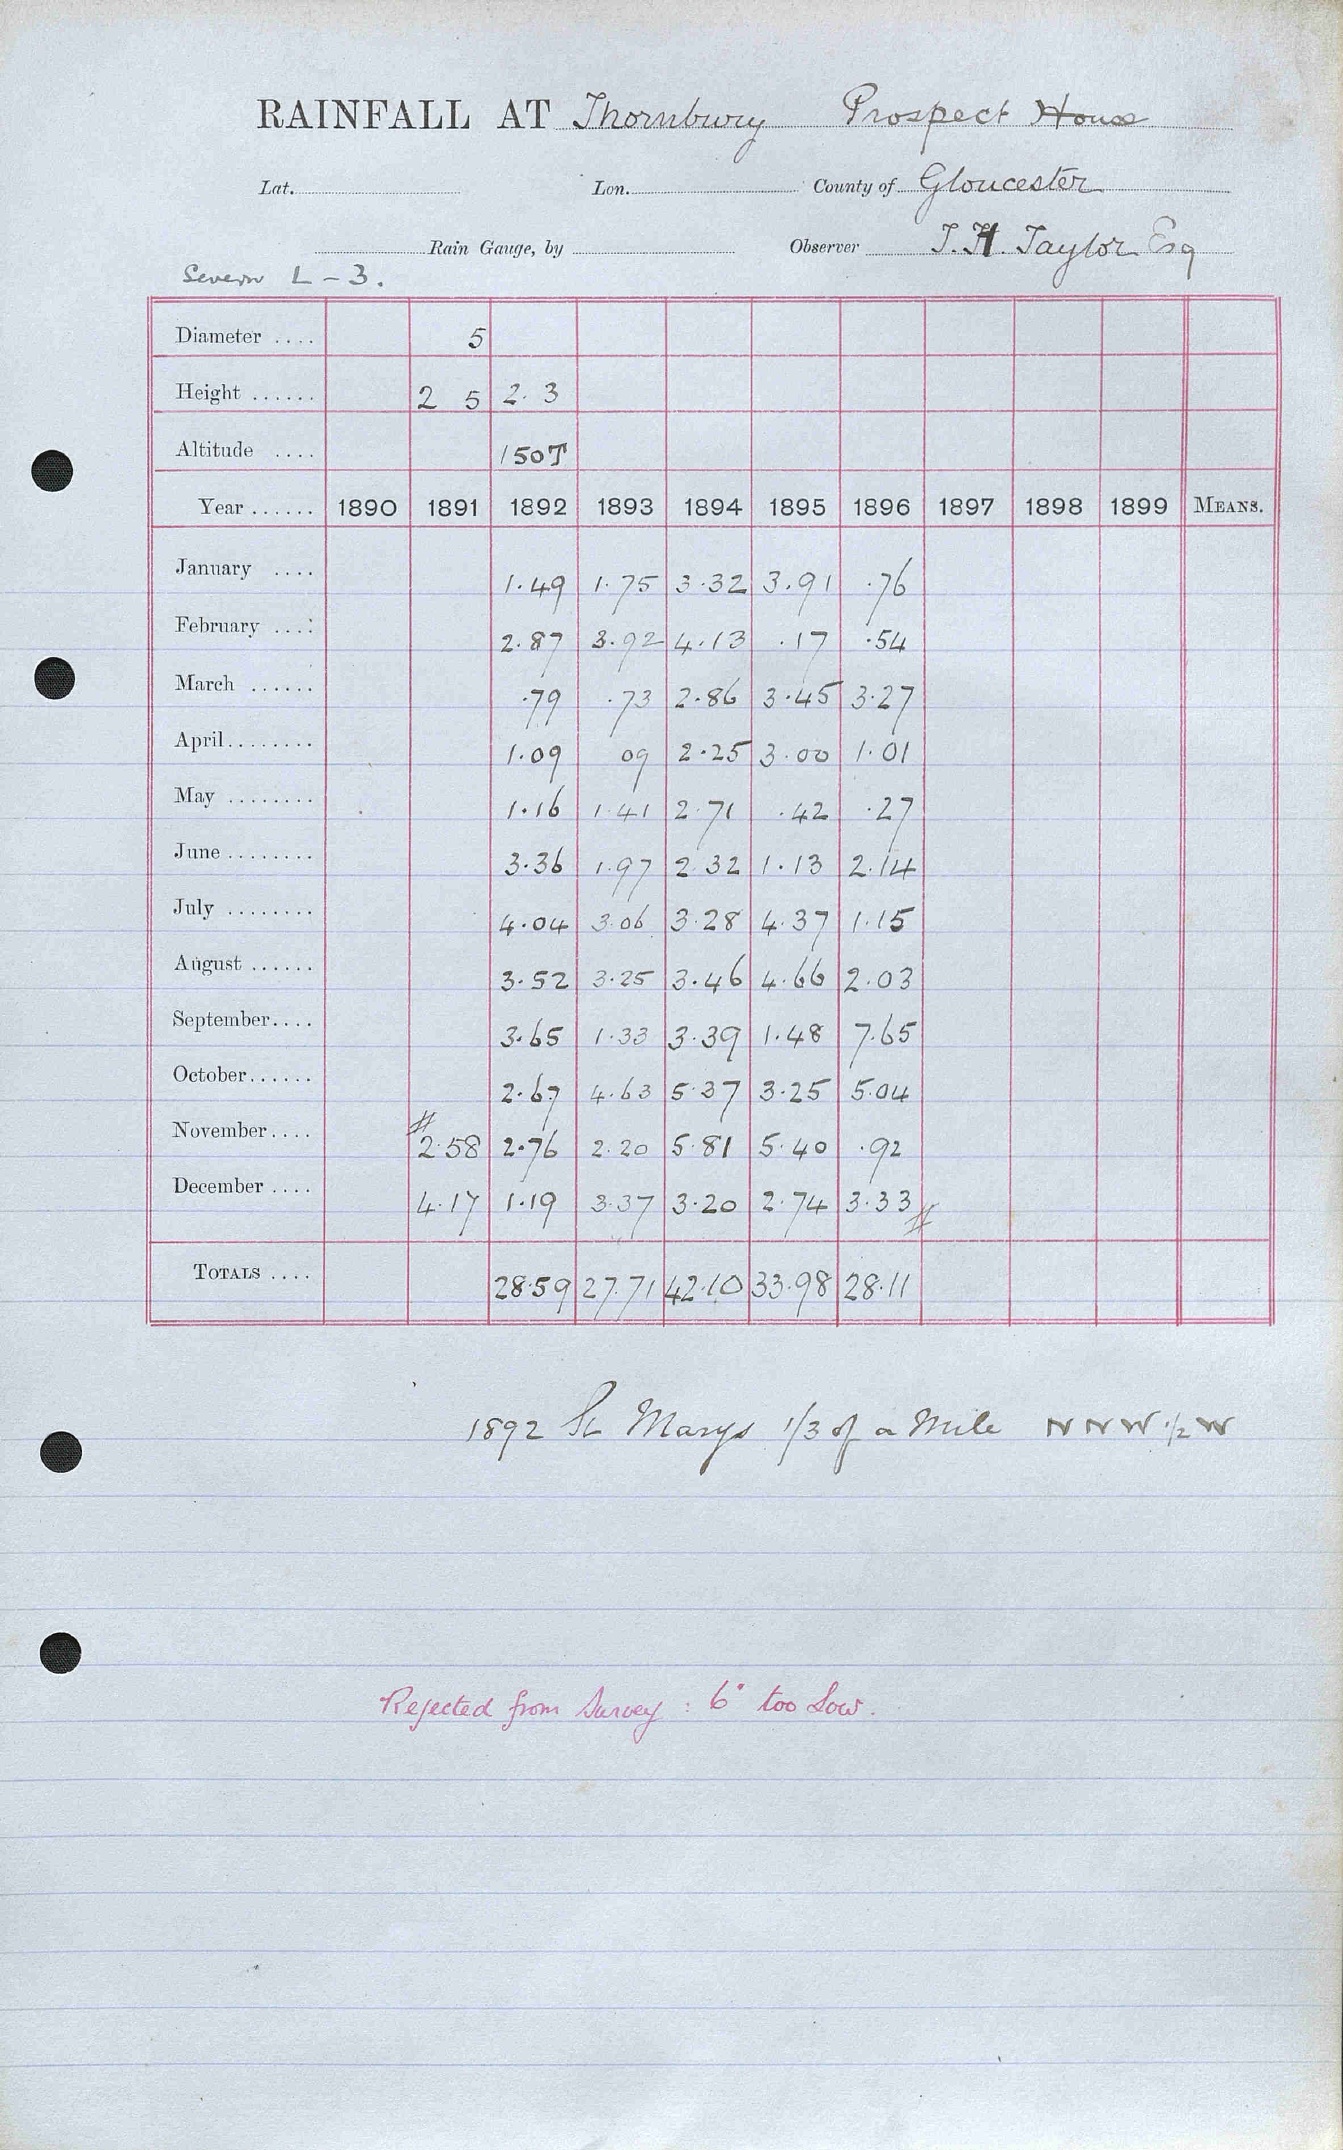 RAINFALL AT Thornbury Prospect House
Lat. Lon. County of Gloucester
Rain Gauge, by Observer T. H. Taylor Esq
Severn L - 3.
Diameter .... 5
Height ...... 2 5 2. 3
Altitude .... 150T
Year ...... 1890 1891 1892 1893 1894 1895 1896 1897 1898 1899 MEANS.
January .... 1.49 1.75 3.32 3.91 .76
February .... 2.87 3.92 4.13 .17 .54
March ...... .79 .73 2.86 3.45 3.27
April........ 1.09 09 2.25 3.00 1.01
May ........ 1.16 1.41 2.71 .42 .27
June ........ 3.36 1.97 2.32 1.13 2.14
July ........ 4.04 3.06 3.28 4.37 1.15
August ...... 3.52 3.25 3.46 4.66 2.03
September.... 3.65 1.33 3.39 1.48 7.65
October...... 2.67 4.63 5.37 3.25 5.04
November.... 2.58 2.76 2.20 5.81 5.40 .92
December .... 4.17 1.19 3.37 3.20 2.74 3.33
TOTALS .... 28.59 27.71 42.10 33.98 28.11
1892 St Marys 1/3 of a Mile N N W 1/2 W
Rejected from Survey : 6" too Low.